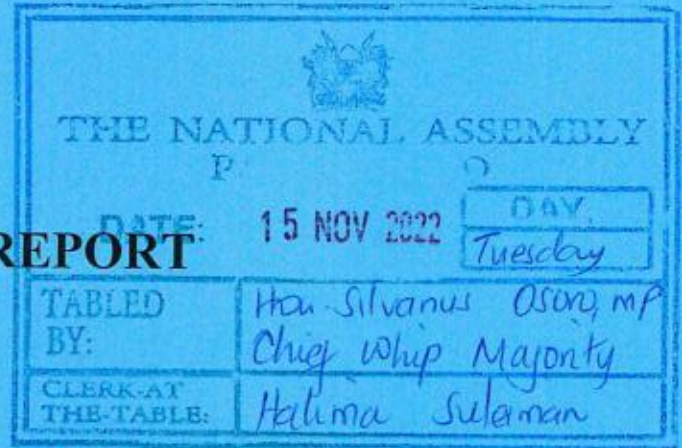 THE NATIONAL ASSEMBLY
P O
DATE: 15 NOV 2022 DAY.
REPORT Tuesday
TABLED BY: Hon. Silvanus Osoro, MP
Chief Whip Majority
CLERK-AT THE-TABLE: Halima Suleman